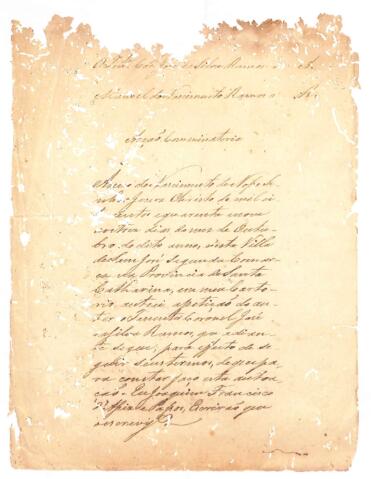 O Ten. Cor. José da Silva Ramos A.
Manoel do Nascimento Ramos R.
Acção Comminatoria
Anno do Nascimento de Nosso Se
nhor Jesus Christo de mil oi
centos e quarenta e nove
aos dias do mes de Outu
bro do dito anno, nesta Villa
de Sam José Segunda Comar
ca da Provincia de Santa
Catharina, em meu Carto
rio autuei a petição do au
tor o Tenente Coronel José
da Silva Ramos, que adian
te segue; para effeito de se
guir seus termos, do que pa
ra constar faço esta autoa
ção. Eu Joaquim Francisco
d'Assis e Passos, Escrivão que
o escrevy